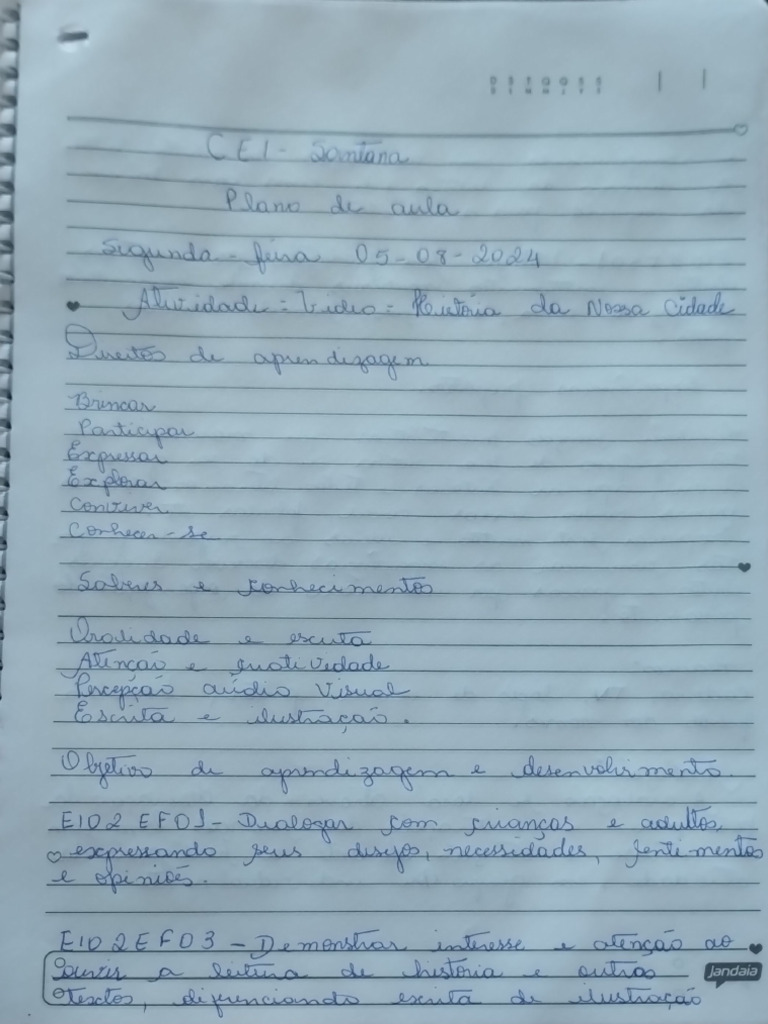 D S T Q Q S S
D L M M J V S
CEI - Santana
Plano de aula
Segunda-feira 05-08-2024
Atividade = Video = História da Nossa Cidade
Direitos de aprendizagem
Brincar
Participar
Expressar
Explorar
Conviver
Conhecer-se
Saberes e conhecimentos
Oralidade e escuta
Atenção e criatividade
Percepção aúdio Visual
Escrita e ilustração.
Objetivo de aprendizagem e desenvolvimento.
EI02EF01 - Dialogar com crianças e adultos,
expressando seus desejos, necessidades, sentimentos
e opiniões.
EI02EF03 - Demonstrar interesse e atenção ao
ouvir a leitura de história e outros
textos, diferenciando escrita de ilustração
Jandaia